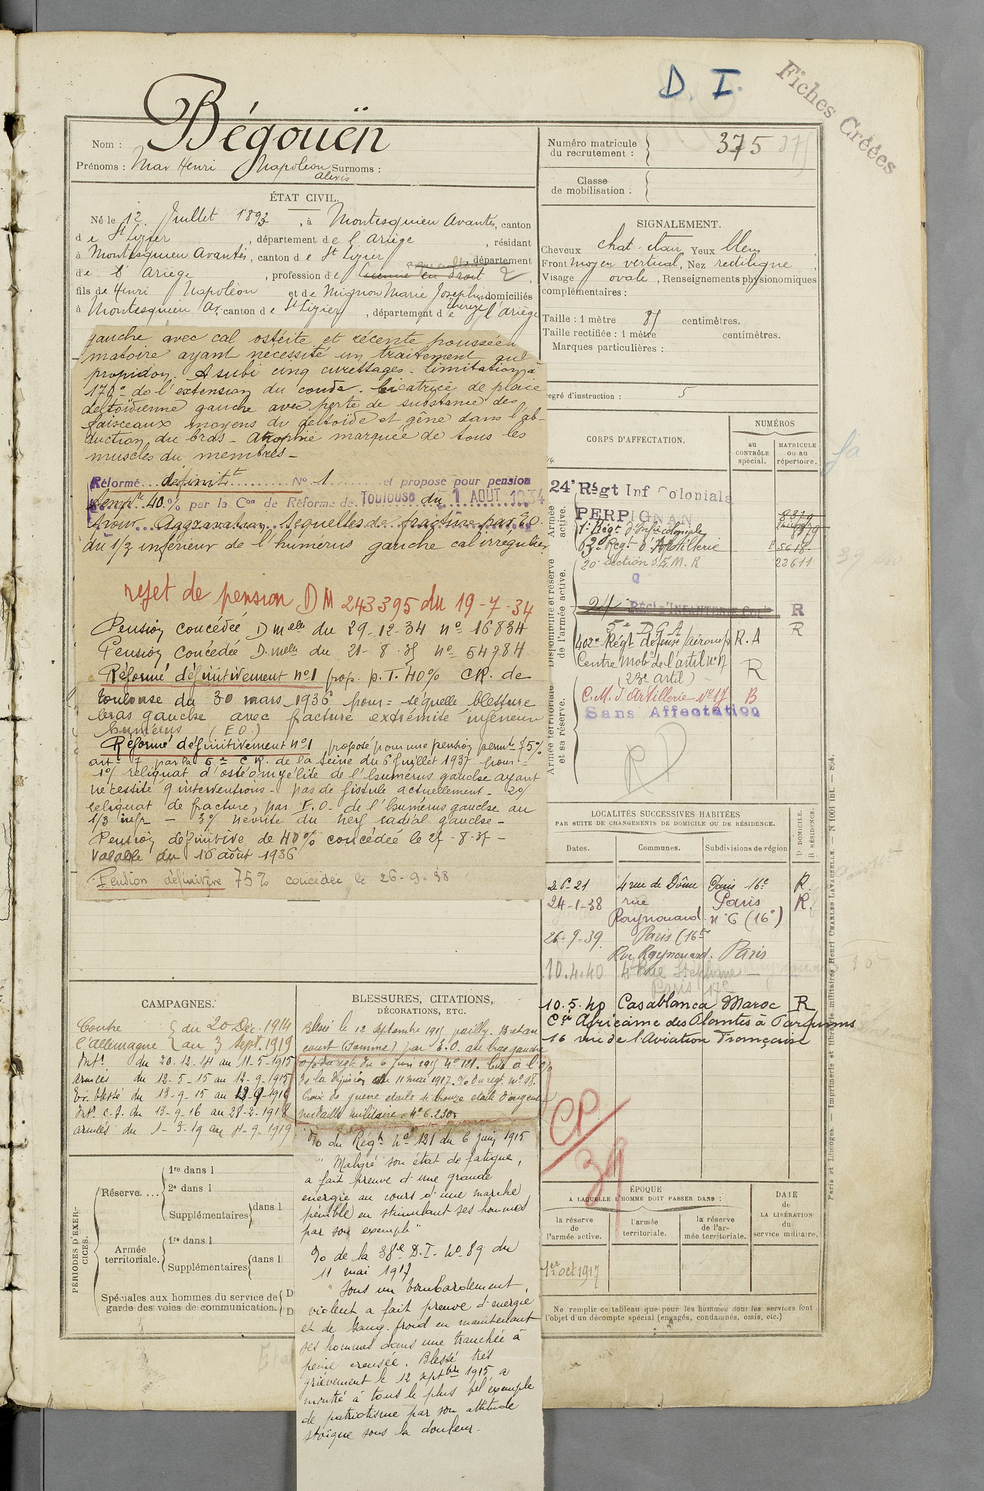 D. I.
Fiches Créées
Nom : Bégouën
Prénoms : Max Henri Napoléon Surnoms :
Alexis
Numéro matricule
du recrutement : 375
Classe
de mobilisation :
ÉTAT CIVIL.
Né le 12 Juillet 1893, à Montesquieu Avantès, canton
de St Lizier, département de l'Ariège, résidant
à Montesquieu Avantès, canton de St Lizier, département
de l'Ariège, profession d
fils de Henri Napoléon et de Mignon Marie Josephe domiciliés
Thérèse
à Montesquieu Av, canton de St Lizier, département de l'Ariège
SIGNALEMENT.
Cheveux chat. clair Yeux bleu
Front moyen vertical, Nez rectiligne
Visage ovale, Renseignements physionomiques
complémentaires :
Taille : 1 mètre 85 centimètres.
Taille rectifiée : 1 mètre centimètres.
Marques particulières :
egré d'instruction : 5
gauche avec cal ostéite et récente poussée
matoire ayant nécessité un traitement
propidon. A subi cinq curettages. limitation à
170° de l'extension du coude. Cicatrice de plaie
deltoïdienne gauche avec perte de substance des
faisceaux moyens du deltoïde et gêne dans l'ab-
duction du bras - Atrophie marquée de tous les
muscles du membres -
Réformé définitt No 1 et propose pour pension
temp 40% par la Con de Réforme de Toulouse du 1 AOUT 1934
Pour Aggravation Séquelles de fracture par
du 1/3 inférieur de l'humérus gauche cal irrégulier
rejet de pension DM 243395 du 19-7-34
Pension concédée Dmelle du 29-12-34 no 16834
Pension concédée Dmelle du 21-8-35 No 54784
Réformé définitivement no1 prop. p.T. 40% CR. de
Toulouse du 30 mars 1936 pour = séquelle blessure
bras gauche avec fracture extrémité inférieure
humérus (E.O)
Réformé définitivement no1 proposé pour une pension permte 75%
art. 7 par la 5e C.R. de la Seine du 6 juillet 1937 pour =
1°) reliquat d'ostéomyélite de l'humérus gauche ayant
nécessité 9 interventions - pas de fistule actuellement - 2°)
reliquat de fracture, par E.O. de l'humérus gauche au
1/3 infr - 3°) névrite du nerf radial gauche -
Pension définitive de 40% concédée le 27-8-37-
Valable du 16 août 1936
Pension définitive 75% concédée le 26-9-38
CORPS D'AFFECTATION.
NUMÉROS
au
contrôle
spécial.
matricule
ou au
répertoire.
Armée
active.
Disponibilité et réserve
de l'armée active.
Armée territoriale
et sa réserve.
24e Régt Inf Coloniale
PERPIGNAN
1r Régt d'Infie Coloniale
Regt d'Artillerie
20e Section S.E.M.R 22611
24 Régt INFANTERIE Cole R
5e D.C.A R
402e Régt défense R.A
Centre mobr de l'artil no 17 R
(23e artil)
C.M. d'Artillerie no 17 B
Sans Affectation
RD
LOCALITÉS SUCCESSIVES HABITÉES
PAR SUITE DE CHANGEMENTS DE DOMICILE OU DE RÉSIDENCE.
Dates. Communes. Subdivisions de région
D. DOMICILE.
R. RÉSIDENCE.
4 rue de Dôme Paris 16e R.
24-1-38 rue Paris R.
Raynouard. no 6 (16e)
26-9-39. Paris (16e
Rue Raynouard. Paris
10.4.40
10.5.40 Casablanca Maroc R
Cie Africaine des Plantes à Parfums
16 rue de l'Aviation Française
CP/39
CAMPAGNES.
Contre du 20 Déc. 1914
l'Allemagne au 3 Sept. 1919
Intr du 20-12-14 au 11-5-1915
armées du 12-5-15 au 12-9-1915
Ev. blessé du 13-9-15 au 12-9-1916
Intr. C.S. du 13-9-16 au 28-2-1918
armées du 1-3-19 au 4-9-1919
BLESSURES, CITATIONS,
DÉCORATIONS, ETC.
Blessé le 12 septembre 1915
court (Somme) par E.O. au bras gauche
O/ du rég. du 6 juin 1915 no 121. Cité à l'O/
de la Division du 11 mai 1917
Croix de guerre étoile de bronze étoile d'argent
médaille militaire
O/ du Régt No 121 du 6 juin 1915
" Malgré son état de fatigue,
a fait preuve d'une grande
énergie au cours d'une marche
pénible en stimulant ses hommes
par son exemple "
O/ de la 38e D.I. No. 89 du
11 mai 1917
" Sous un bombardement
violent a fait preuve d'énergie
et de sang-froid en maintenant
ses hommes dans une tranchée à
peine creusée. Blessé très
grièvement le 12 septbre 1915 a
montré à tous le plus bel exemple
de patriotisme par son attitude
stoïque sous la douleur.
PÉRIODES D'EXER-
CICES.
Réserve...
1re dans l
2e dans l
Supplémentaires dans l
Armée
territoriale.
1re dans l
Supplémentaires dans l
Spéciales aux hommes du service de
garde des voies de communication.
D
D
ÉPOQUE
A LAQUELLE L'HOMME DOIT PASSER DANS :
la réserve
de
l'armée active.
l'armée
territoriale.
la réserve
de l'ar-
mée territoriale.
DATE
de
LA LIBÉRATION
du
service militaire.
1er oct 1917
Ne remplir ce tableau que pour les hommes dont les services font
l'objet d'un décompte spécial (engagés, condamnés, omis, etc.)
Paris et Limoges. — Imprimerie et librairie militaires Henri CHARLES-LAVAUZELLE. —